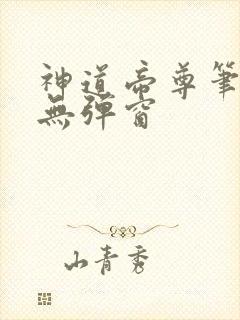 神道帝尊筆
無彈窗
山青秀